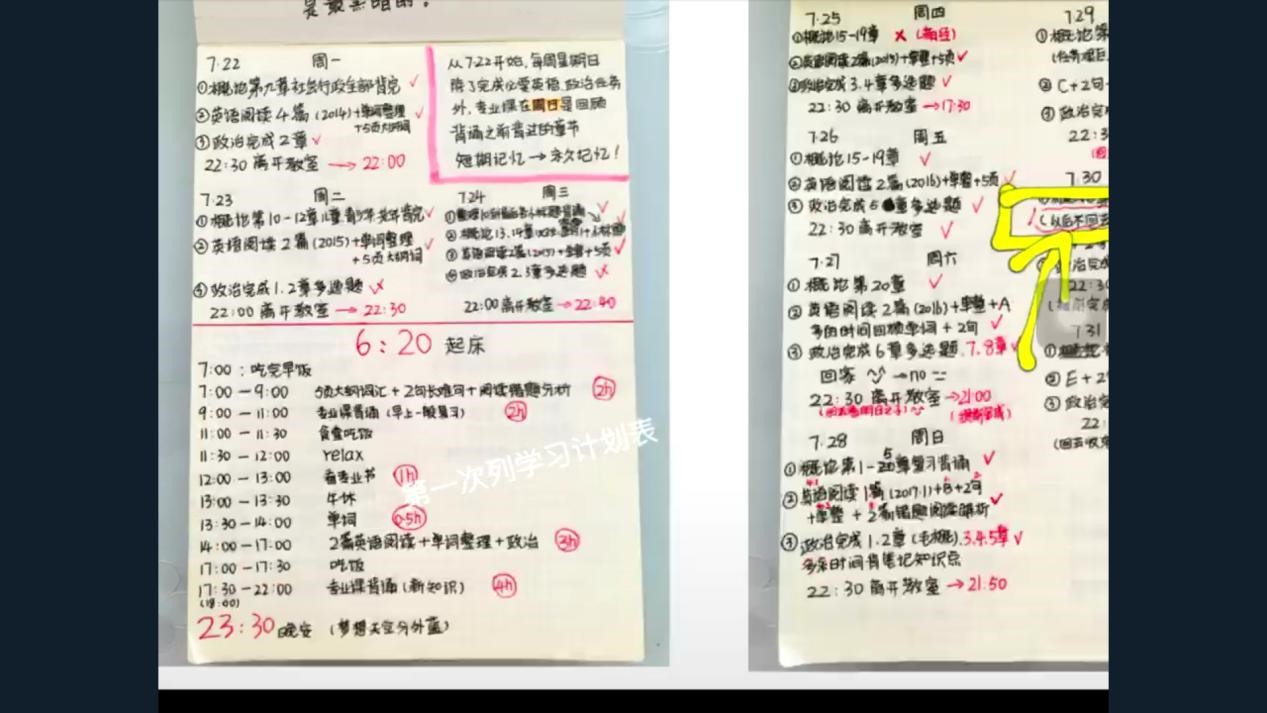 是最黑暗的！
7.22 周一
①概论第九章社会行政全部背完 ✓
②英语阅读4篇(2014)+单词整理 ✓
+5页大纲词
③政治完成2章 ✓
22:30 离开教室 → 22:00
从7.22开始,每周星期日
除了完成必要英语、政治任务
外,专业课在周日是回顾
背诵之前背过的章节
短期记忆 → 永久记忆!
7.23 周二
①概论第10-12章儿童青少年 背完 ✓
②英语阅读2篇(2015)+单词整理 ✓
+5页大纲词
③政治完成1.2章多选题 ✓
22:00 离开教室 → 22:30
7.24 周三
②概论13.14章
③英语阅读2篇(2015)+单整+5页 ✓
④政治完成2.3章多选题 ✗
22:00 离开教室 → 22:40
6:20 起床
7:00 : 吃完早饭
7:00 - 9:00 5页大纲词汇+2句长难句+阅读错题分析 2h
9:00 - 11:00 专业课背诵(早上一般复习) 2h
11:00 - 11:30 食堂吃饭
11:30 - 12:00 relax
12:00 - 13:00 看专业书 1h
13:00 - 13:30 午休
13:30 - 14:00 单词 0.5h
14:00 - 17:00 2篇英语阅读+单词整理+政治 3h
17:00 - 17:30 吃饭
17:30 - 22:00 专业课背诵(新知识) 4h
(18:00)
23:30 晚安 (梦想天空分外蓝)
第一次列学习计划表
7.25 周四
①概论15-19章 ✗
②英语阅读2篇(2015)+单整+5页 ✓
③政治完成3.4章多选题 ✓
22:30 离开教室 → 17:30
7.26 周五
①概论15-19章 ✓
②英语阅读2篇(2016)+单整+5页 ✓
③政治完成5章多选题 ✓
22:30 离开教室 ✓
7.27 周六
①概论第20章 ✓
②英语阅读2篇(2016)+单整+A
多的时间回顾单词+2句 ✓
③政治完成6章多选题.7.8章 ✓
回家 → no
22:30 离开教室 → 21:00
7.28 周日
①概论第1-20章复习背诵 ✓
5
②英语阅读1篇(2017.1)+B+2句
+单整+2篇错题阅读解析 ✓
③政治完成1.2章(毛概).3.4.5章 ✓
多余时间背笔记知识点
22:30 离开教室 → 21:50
7.29
①概论第
②C+2句
③政治
22:3
7.30
(以后不回去
政治完
22:30
7.31
①概论
②E+2
③政治完
22: